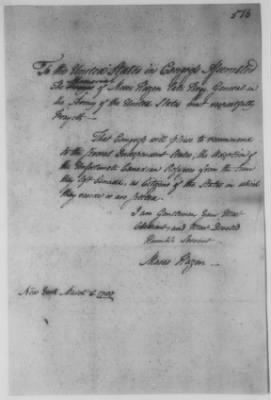 573
To the United States in Congress Assembled
Memorial
The of Moses Hazen late Brig. General in
the Army of the United States most respectfully
Sheweth —
That Congress will please to recommend
to the Several Independent States, the Adoption of
the Unfortunate Canadian Refugees from the time
they left Canada, as Citizens of the States in which
they reside or are
I am Gentlemen Your Most
Obedient, and Most Devoted
Humble Servant
Moses Hazen
New York March 6